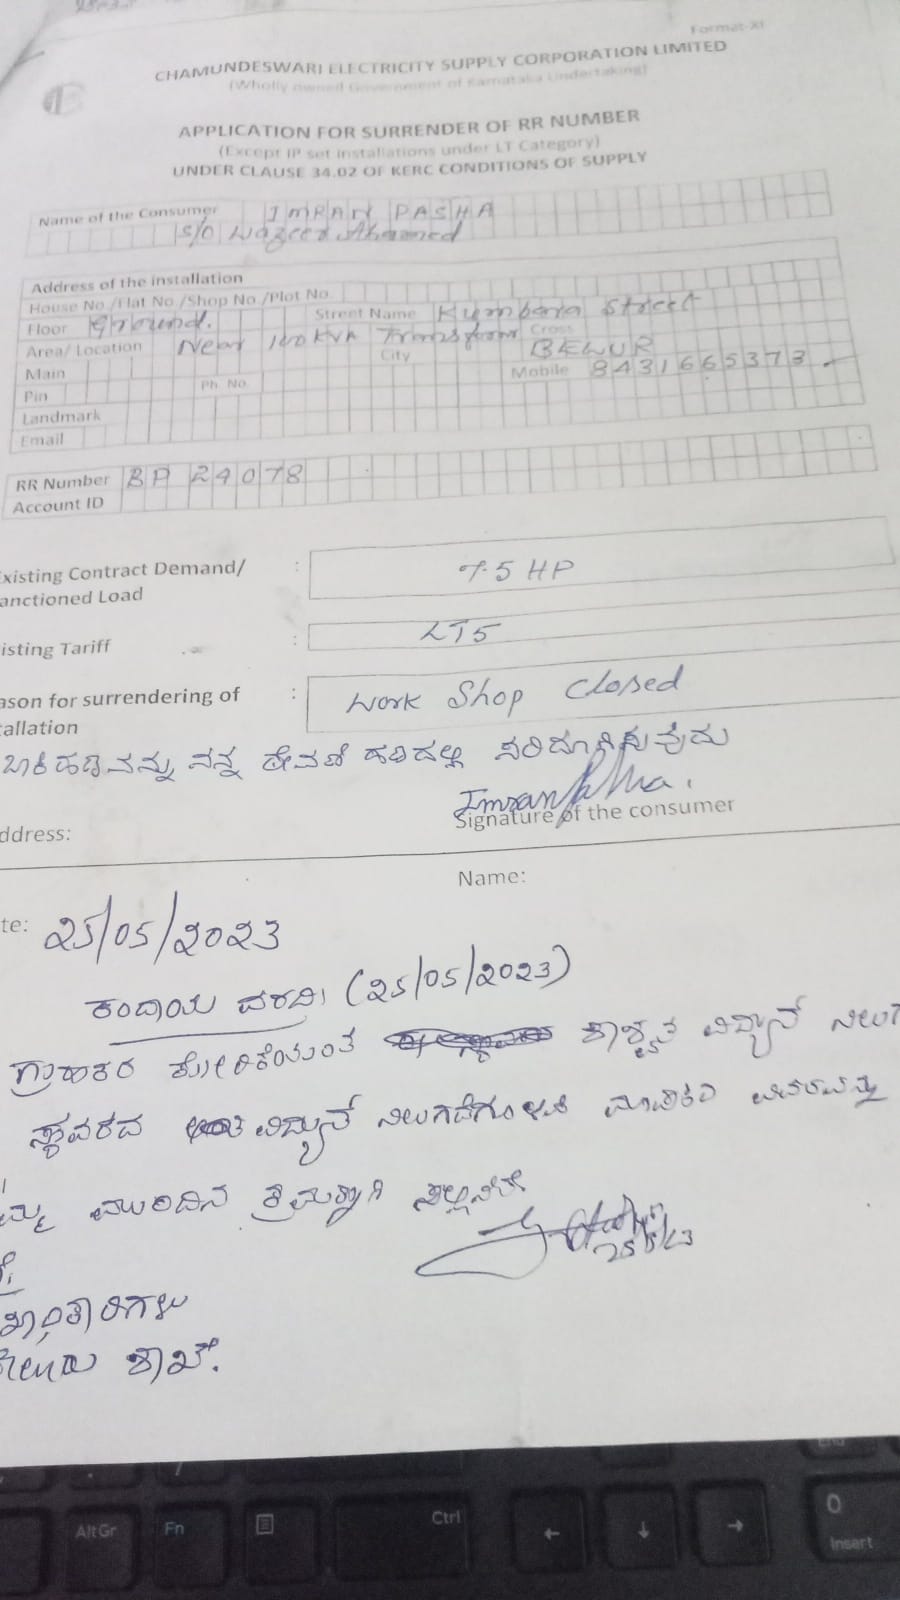 Format-XI
CHAMUNDESWARI ELECTRICITY SUPPLY CORPORATION LIMITED
(Wholly owned Government of Karnataka Undertaking)
APPLICATION FOR SURRENDER OF RR NUMBER
(Except IP set installations under LT Category)
UNDER CLAUSE 34.02 OF KERC CONDITIONS OF SUPPLY
Name of the Consumer IMRAN PASHA
S/O Wazeer Ahamed
Address of the installation
House No./Flat No./Shop No./Plot No.
Floor Ground. Street Name Kumbara Street
Area/ Location Near 100 KVA Cross
Main City BELUR
Pin Ph. No. Mobile 8431665373
Landmark
Email
RR Number BP 24078
Account ID
xisting Contract Demand/ : 7.5 HP
anctioned Load
isting Tariff : LT5
ason for surrendering of : Work Shop Closed
tallation
ಬಾಕಿ ಹಣವನ್ನು ನನ್ನ ಠೇವಣಿ ಹಣದಲ್ಲಿ ಸರಿದೂಗಿಸುವುದು
Imran Pasha.
Signature of the consumer
ddress:
Name:
te: 25/05/2023
ಕಂದಾಯ ವರದಿ (25/05/2023)
ಗ್ರಾಹಕರ ಕೋರಿಕೆಯಂತೆ ಶಾಶ್ವತ ವಿದ್ಯುತ್ ನಿಲುಗ
ಸ್ಥಾವರದ ವಿದ್ಯುತ್ ನಿಲುಗಡೆಗೊಳಿಸಿ ಮಾಪಕದ ವಿವರವನ್ನು
ಮ್ಮ ಮುಂದಿನ ಕ್ರಮಕ್ಕಾಗಿ ಸಲ್ಲಿಸಿದೆ
25/5/23
ಶಾಖಾಧಿಕಾರಿಗಳು
ಬೇಲೂರು ಶಾಖೆ.
AltGr Fn Ctrl ← ↓ → 0
Insert
End